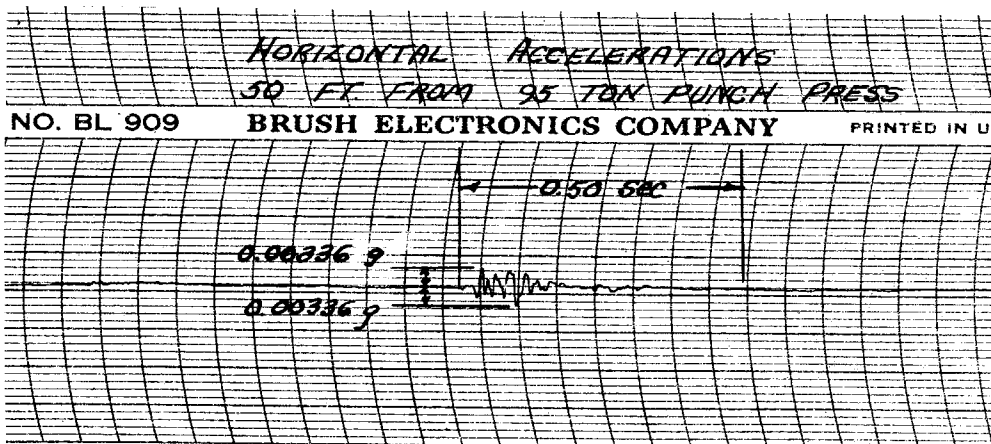 HORIZONTAL ACCELERATIONS
50 FT. FROM 95 TON PUNCH PRESS
NO. BL 909 BRUSH ELECTRONICS COMPANY PRINTED IN U
0.50 SEC
0.00336 g
0.00336 g